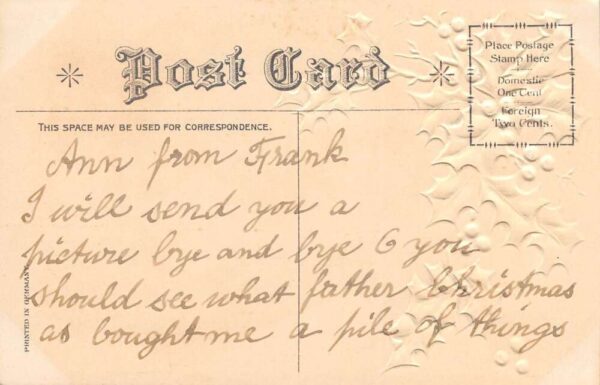 Post Card
Place Postage
Stamp Here
Domestic
One Cent
Foreign
Two Cents.
THIS SPACE MAY BE USED FOR CORRESPONDENCE.
Ann from Frank
I will send you a
picture bye and bye O you
should see what father Christmas
as bought me a pile of things
PRINTED IN GERMANY